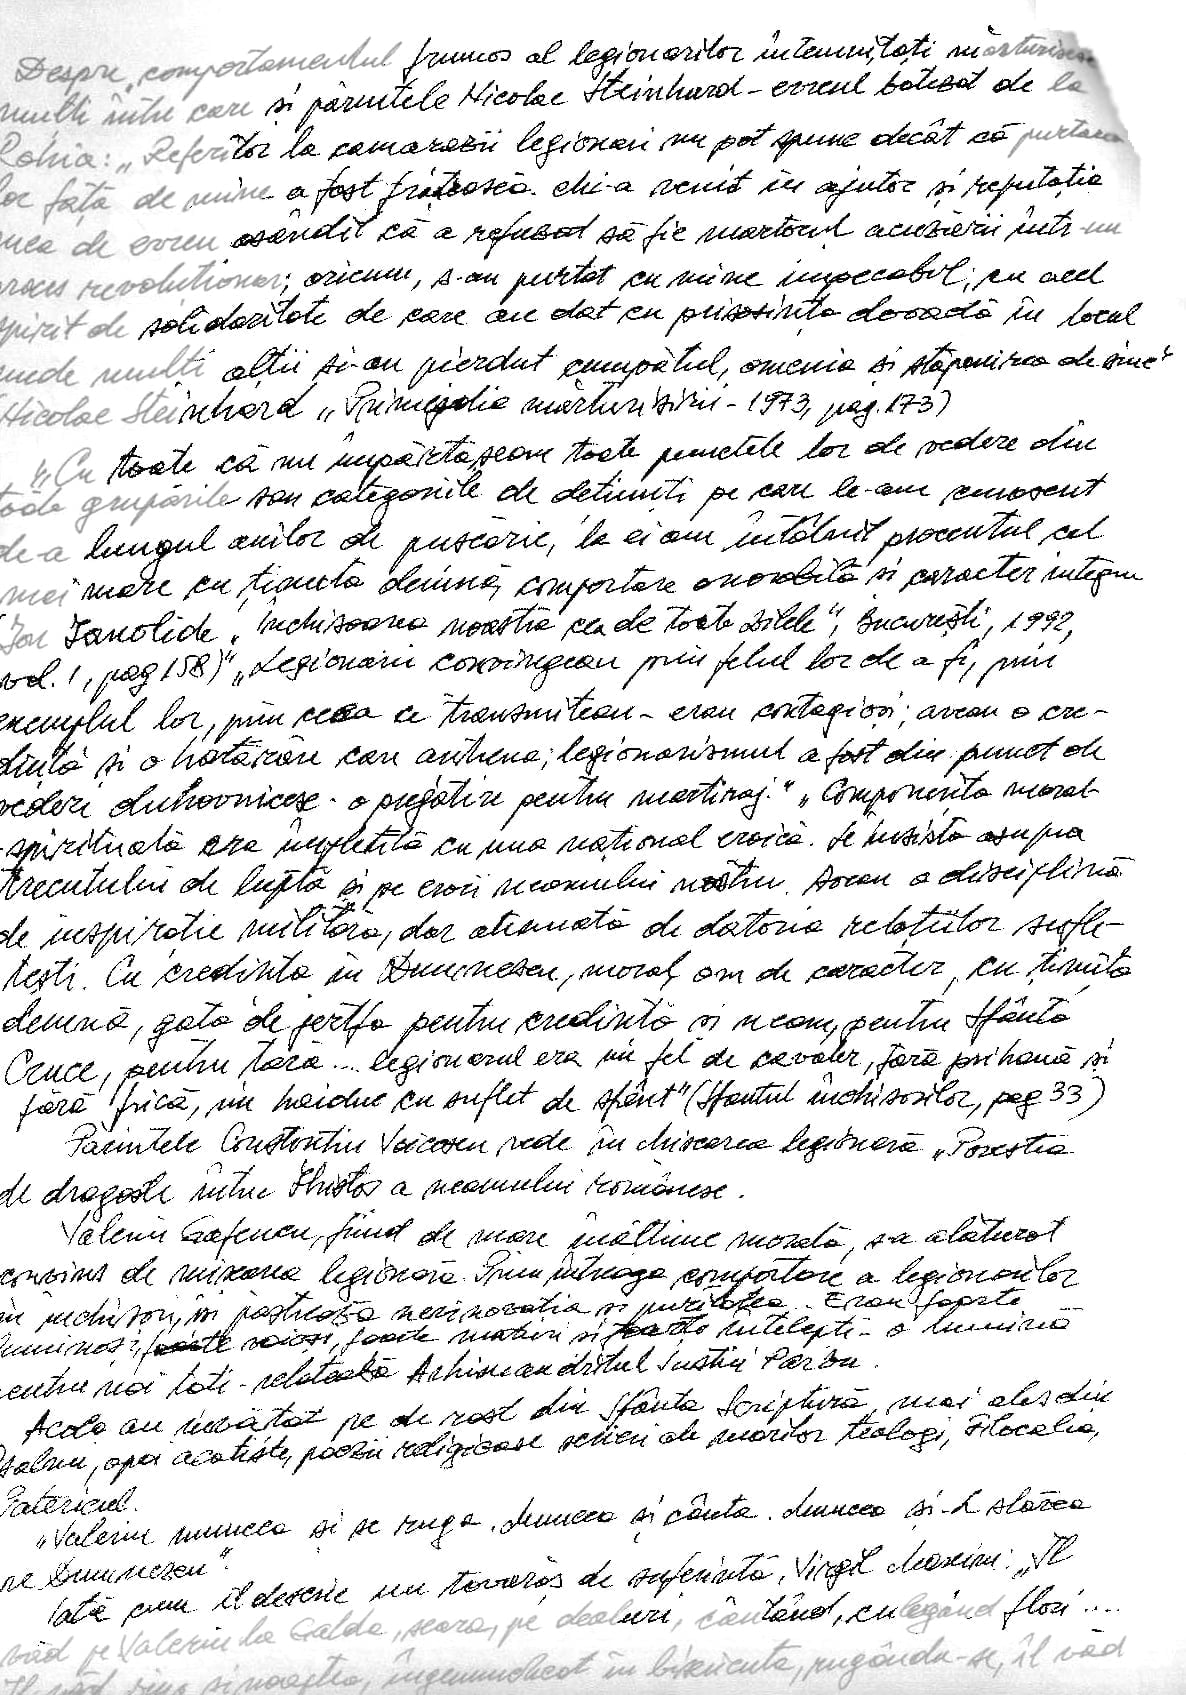 Despre „comportamentul frumos al legionarilor întemnițați mărturisesc
mulți între care și părintele Nicolae Steinhard - evreul botezat de la
Rohia: „Referitor la camarazii legionari nu pot spune decât că purtarea
lor față de mine a fost frățească. Mi-a venit în ajutor și reputația
mea de evreu osândit că a refuzat să fie martorul acuzării într-un
proces revoluționar; oricum, s-au purtat cu mine impecabil; cu acel
spirit de solidaritate de care au dat cu prisosință dovadă în locul
unde mulți alții și-au pierdut cumpătul, omenia și stăpânirea de sine"
(Nicolae Steinhard „Primejdia mărturisirii - 1973, pag. 173)
„Cu toate că nu împărtășeam toate punctele lor de vedere din
toate grupările sau categoriile de deținuți pe care le-am cunoscut
de-a lungul anilor de pușcărie, la ei am întâlnit procentul cel
mai mare cu ținută demnă, comportare onorabilă și caracter integru
(Ion Ianolide „Închisoarea noastră cea de toate zilele", București, 1992,
vol. 1, pag 158)" „Legionarii convingeau prin felul lor de a fi, prin
exemplul lor, prin ceea ce transmiteau - erau contagioși; aveau o cre-
dință și o hotărâre care antrena; legionarismul a fost din punct de
vedere duhovnicesc - o pregătire pentru martiraj." „Componența moral-
-spirituală era împletită cu una național eroică. Se insista asupra
trecutului de luptă și pe eroii neamului nostru. Aveau o disciplină
de inspirație militară, dar atenuată de datoria relațiilor sufle-
tești. Cu credința în Dumnezeu, moral, om de caracter, cu ținuta
demnă, gata de jertfa pentru credință și neam, pentru Sfânta
Cruce, pentru țară ... legionarul era un fel de cavaler, fără prihană și
fără frică, un haiduc cu suflet de sfânt" (Sfântul închisorilor, pag 33)
Părintele Constantin Voicescu vede în Mișcarea legionară „Povestea
de dragoste între Hristos a neamului românesc.
Valeriu Gafencu, fiind de mare înălțime morală, s-a alăturat
convins de mișcarea legionară. Prin întreaga comportare a legionarilor
în închisori, își păstrează nevinovăția și puritatea. Erau foarte
luminoși, foarte voioși, foarte maturi și foarte înțelepți - o lumină
pentru noi toți - relatează Arhimandritul Iustin Pârvu.
Acolo au învățat pe de rost din Sfânta Scriptură, mai ales din
Psalmi, apoi acatiste, poezii religioase scrieri ale marilor teologi, Filocalia,
Patericul.
„Valeriu muncea și se ruga. Muncea și cânta. Muncea și-L slăvea
pe Dumnezeu".
Iată cum îl descrie un tovarăș de suferință, Virgil Maxim: „Îl
văd pe Valeriu la Galda, seara, pe dealuri, cântând, culegând flori ....
Îl văd și noaptea, îngenuncheat în bisericuța, rugându-se, îl văd